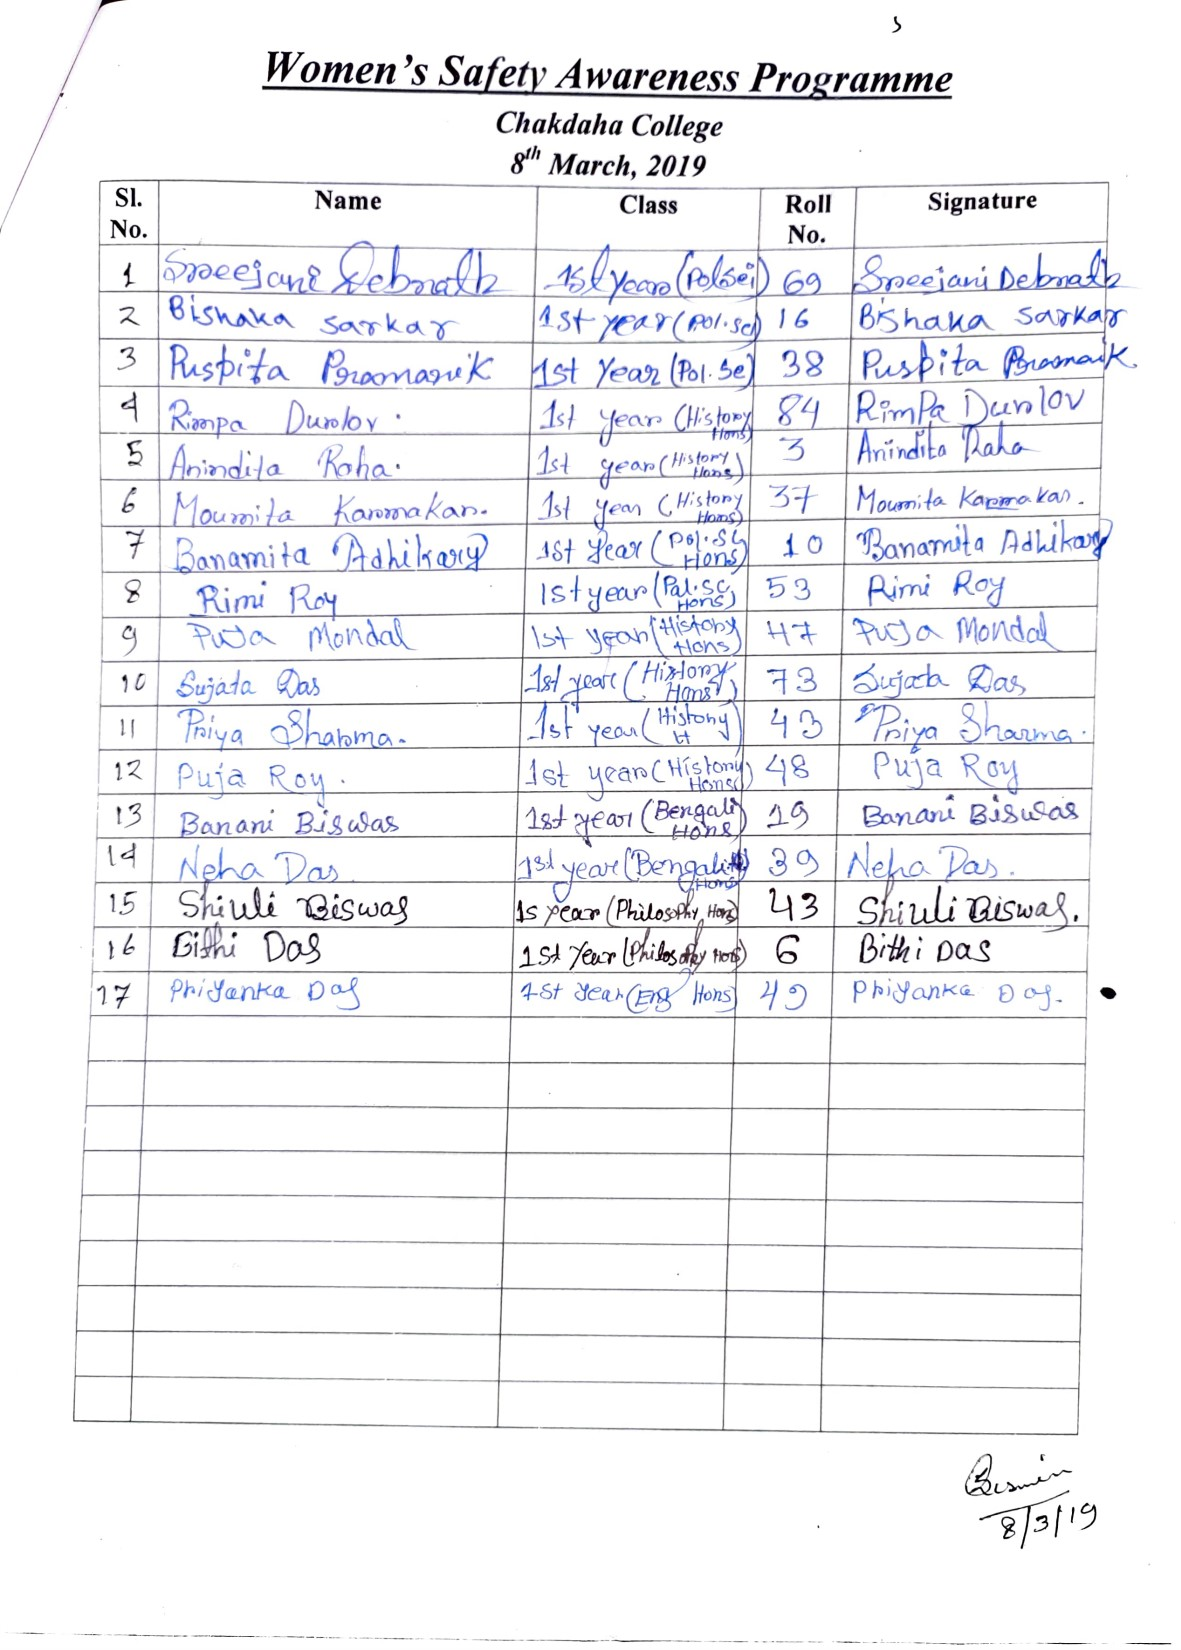 Women's Safety Awareness Programme
Chakdaha College
8th March, 2019
Sl. No. Name Class Roll No. Signature
1 Sreejani Debnath 1st Year (Pol Sci) 69 Sreejani Debnath
2 Bishaka Sarkar 1st year (Pol.Sc) 16 Bishaka Sarkar
3 Puspita Pramanik 1st Year (Pol. Sc) 38 Puspita Pramanik
4 Rimpa 1st year (History Hons) 84 Rimpa
5 Anindita Raha. 1st year (History Hons) 3 Anindita Raha
6 Moumita Karmakar. 1st year (History Hons) 37 Moumita Karmakar.
7 Banamita Adhikary 1st Year (Pol.Sc Hons) 10 Banamita Adhikary
8 Rimi Roy 1st year (Pol.Sc Hons) 53 Rimi Roy
9 Puja Mondal 1st year (History Hons) 47 Puja Mondal
10 Sujata Das 1st year (History Hons) 73 Sujata Das
11 Priya Sharma. 1st year (History H) 43 Priya Sharma.
12 Puja Roy. 1st year (History Hons) 48 Puja Roy
13 Banani Biswas 1st year (Bengali Hons) 19 Banani Biswas
14 Neha Das 1st year (Bengali Hons) 39 Neha Das.
15 Shiuli Biswas 1s year (Philosophy Hons) 43 Shiuli Biswas.
16 Bithi Das 1st Year (Philosophy Hons) 6 Bithi Das
17 Priyanka Das 1st Year (Eng Hons) 49 Priyanka Das.
8/3/19